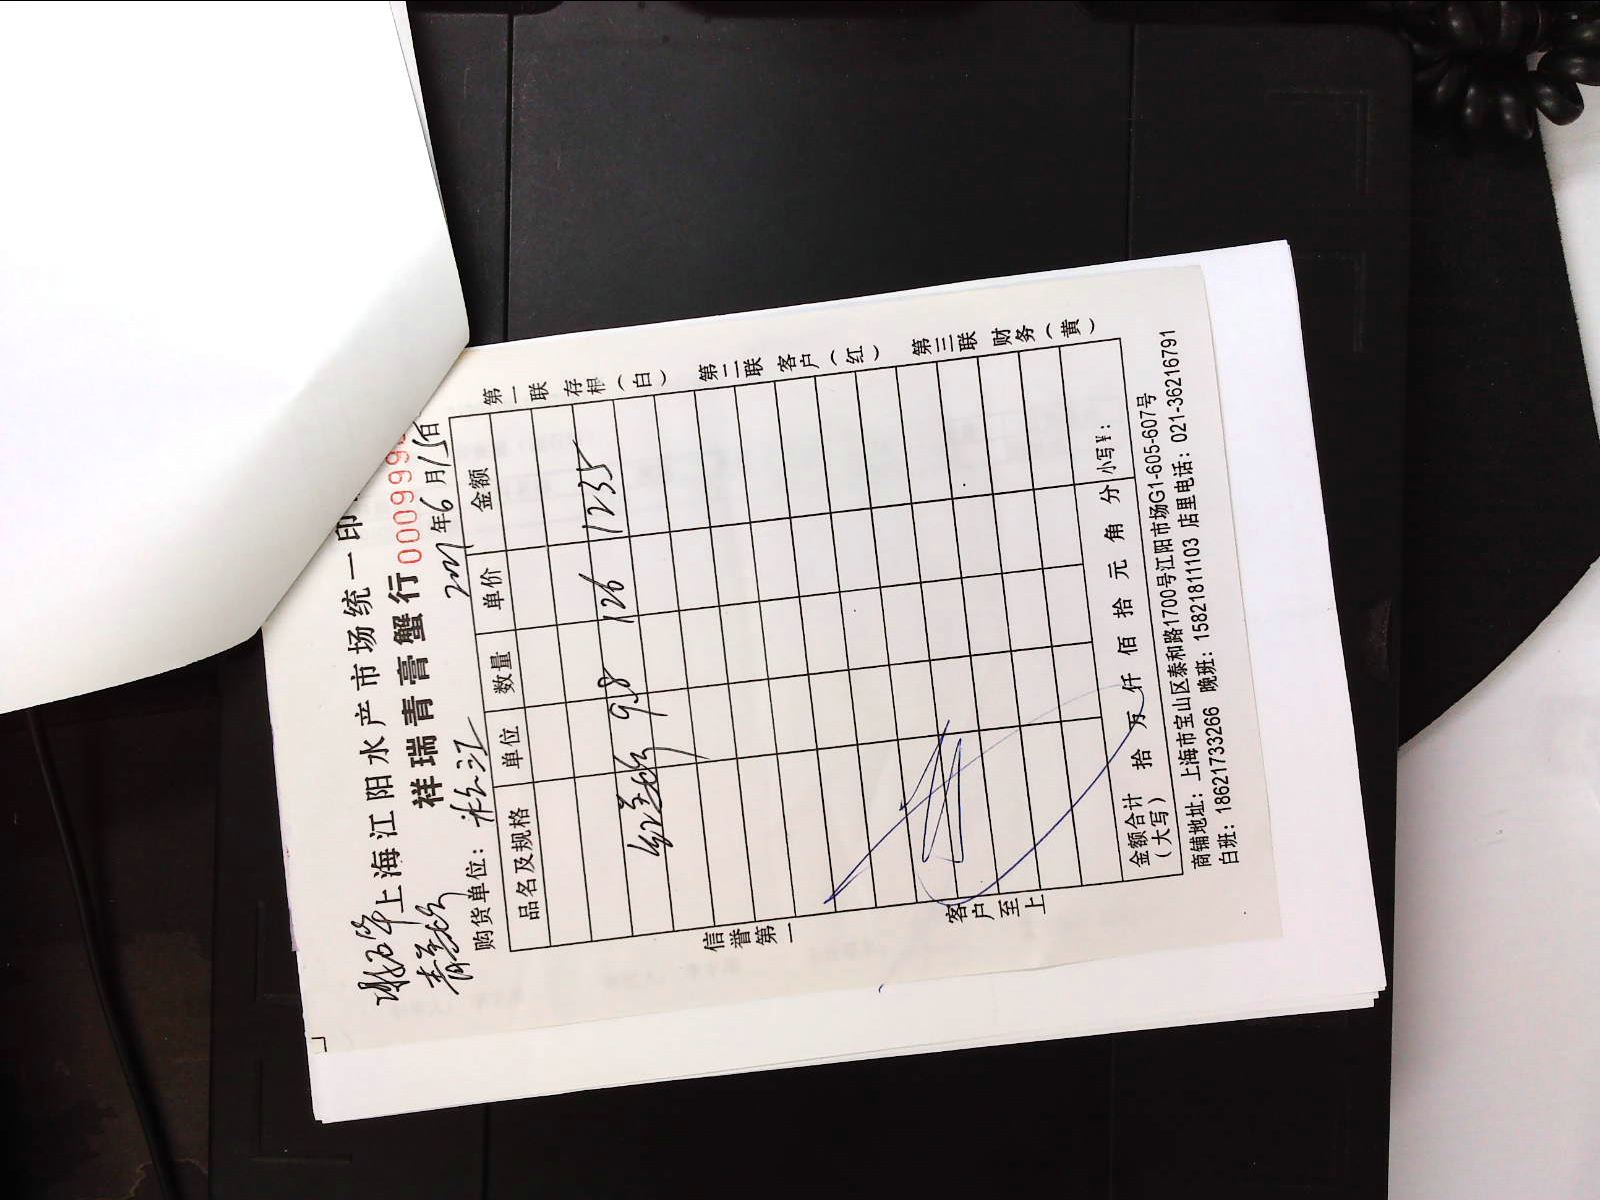 上海江阳水产市场统一印
祥瑞青膏蟹行 0009999
购货单位： 2021年6月15日
品名及规格 单位 数量 单价 金额
9.8 126 1235
金额合计（大写） 拾 万 仟 佰 拾 元 角 分 小写¥：
商铺地址：上海市宝山区泰和路1700号江阳市场G1-605-607号
白班：18621733266 晚班：15821811103 店里电话：021-36216791
信誉第一
客户至上
第一联 存根（白）
第二联 客户（红）
第三联 财务（黄）